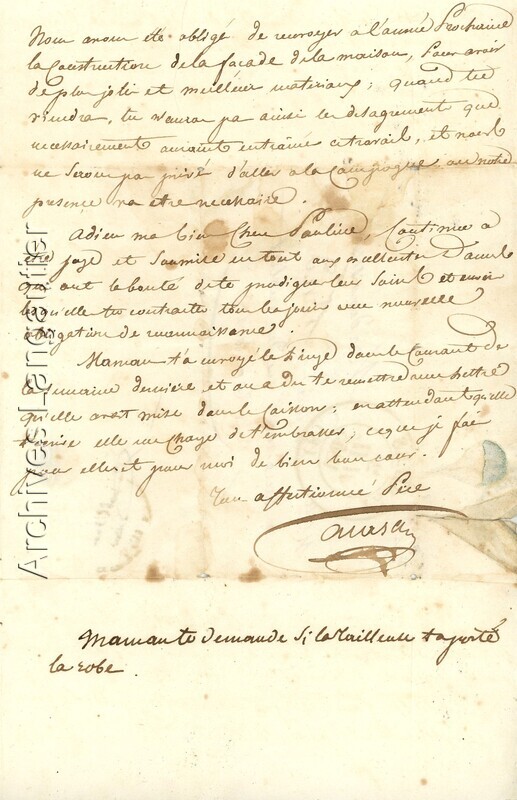 Nous avons été obligé de renvoyer à l'année Prochaine
la Construction de la façade de la maison, Pour avoir
de plus joli et meilleur materiaux; quand tu
viendra, tu n'aura pas ainsi les desagrement que
necessairement auraient entrainé ce travail, et nous
ne serons pas privé d'aller a la Campagne ou notre
presence va etre necessaire.
Adieu ma bien Chere Pauline, Continue à
etre sage et Soumise en tout aux excellentes Dames
qui ont la bonté de te prodiguer leurs Soins et envers
lesquelles tu contracte tous les jours une nouvelle
obligation de reconnaissance.
Maman t'a envoyé le linge dans le Courant de
la Semaine derniere et on a du te remettre une lettre
qu'elle avait mise dans le Caisson; en attendant qu'elle
t'ecrive elle me Charge de t'embrasser, ce que je fais
pour elle et pour moi de bien bon cœur.
Ton affectionné Père
Maman te demande Si la Tailleuse t'a porté
la robe
Archives Langranier